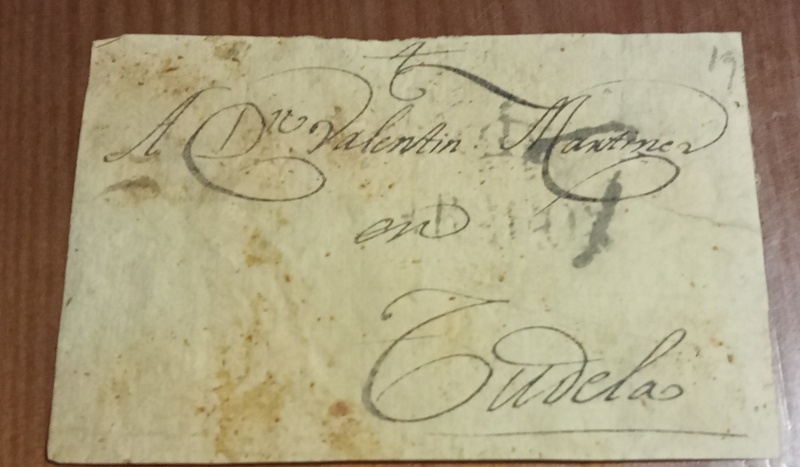 19
A Dn Valentin Martinez
en
Tudela